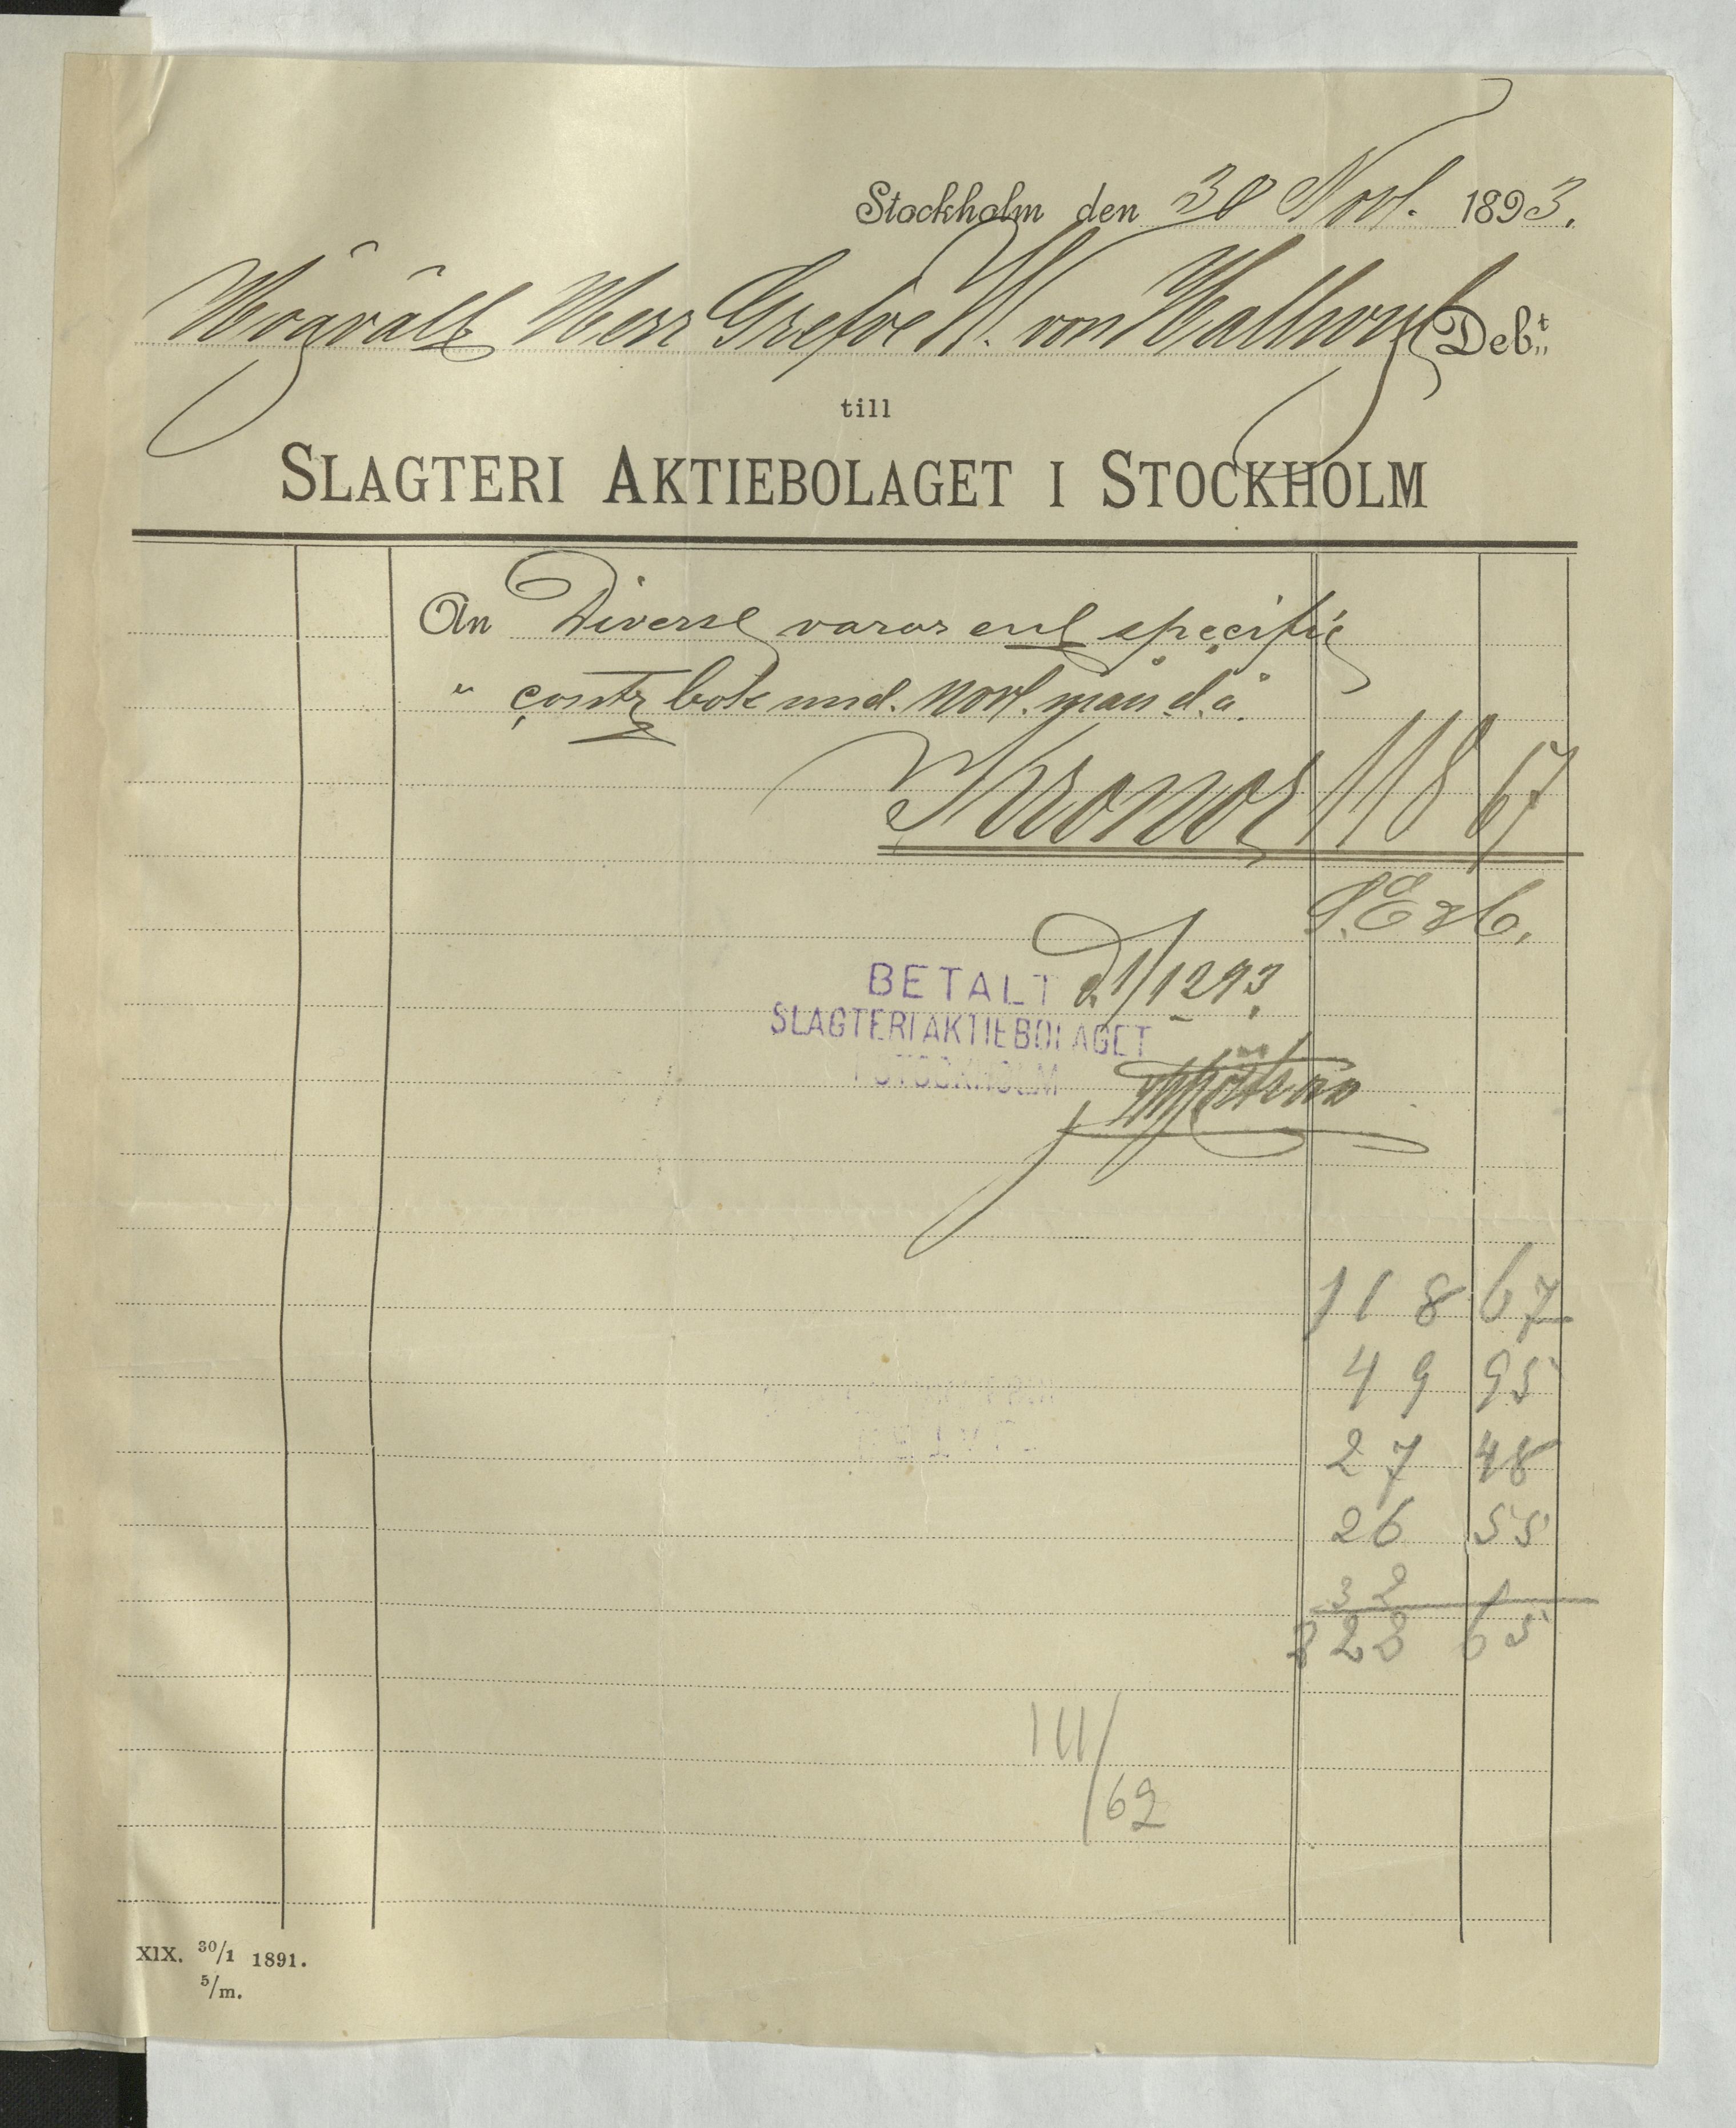 Stockholm den 30 Novb. 1893.
Högvälb Herr Grefve W. von Hallwyl Deb:t
till
SLAGTERI AKTIEBOLAGET I STOCKHOLM
An Diverse varor enl specific
" contr bok und. Novb. mån d. å.
Kronor 118 67
S. E. & O.
BETALT d. 1/12 93
SLAGTERIAKTIEBOLAGET
I STOCKHOLM
118 67
49 95
27 48
26 55
3 2 1
222 65
111/62
XIX. 30/1 1891.
5/m.